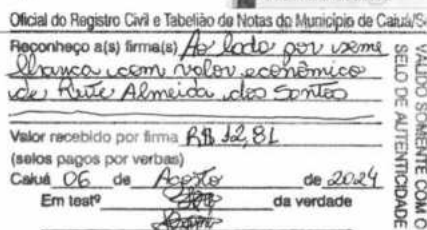 Oficial do Registro Civil e Tabelião de Notas do Município de Caiuá/S
Reconheço a(s) firma(s) Ao lado por seme
lhança com valor econômico
de Rute Almeida dos Santos
Valor recebido por firma R$ 12,81
(selos pagos por verbas)
Caiuá 06 de Agosto de 2024
Em testº da verdade
VÁLIDO SOMENTE COM O
SELO DE AUTENTICIDADE